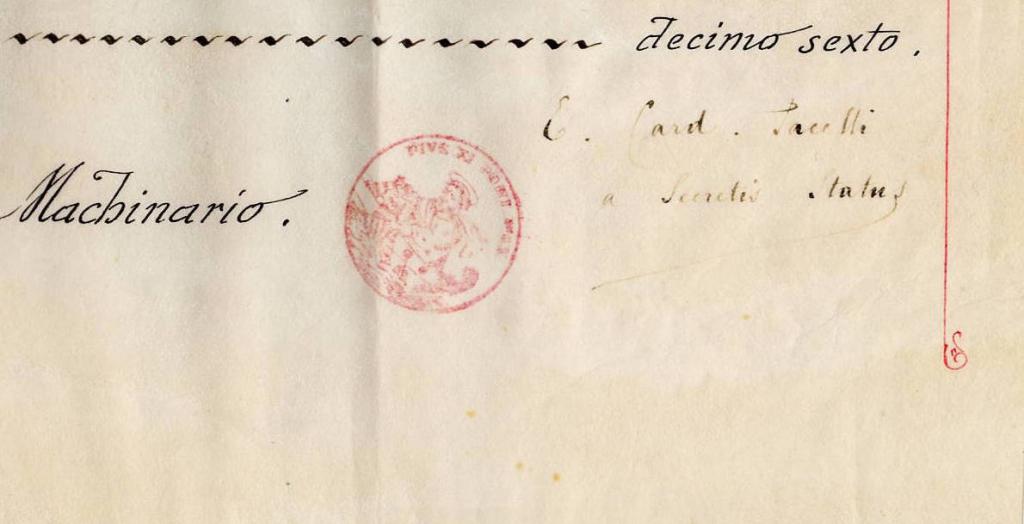 decimo sexto.
E. Card. Pacelli
a Secretis Status
Machinario.
PIVS XI